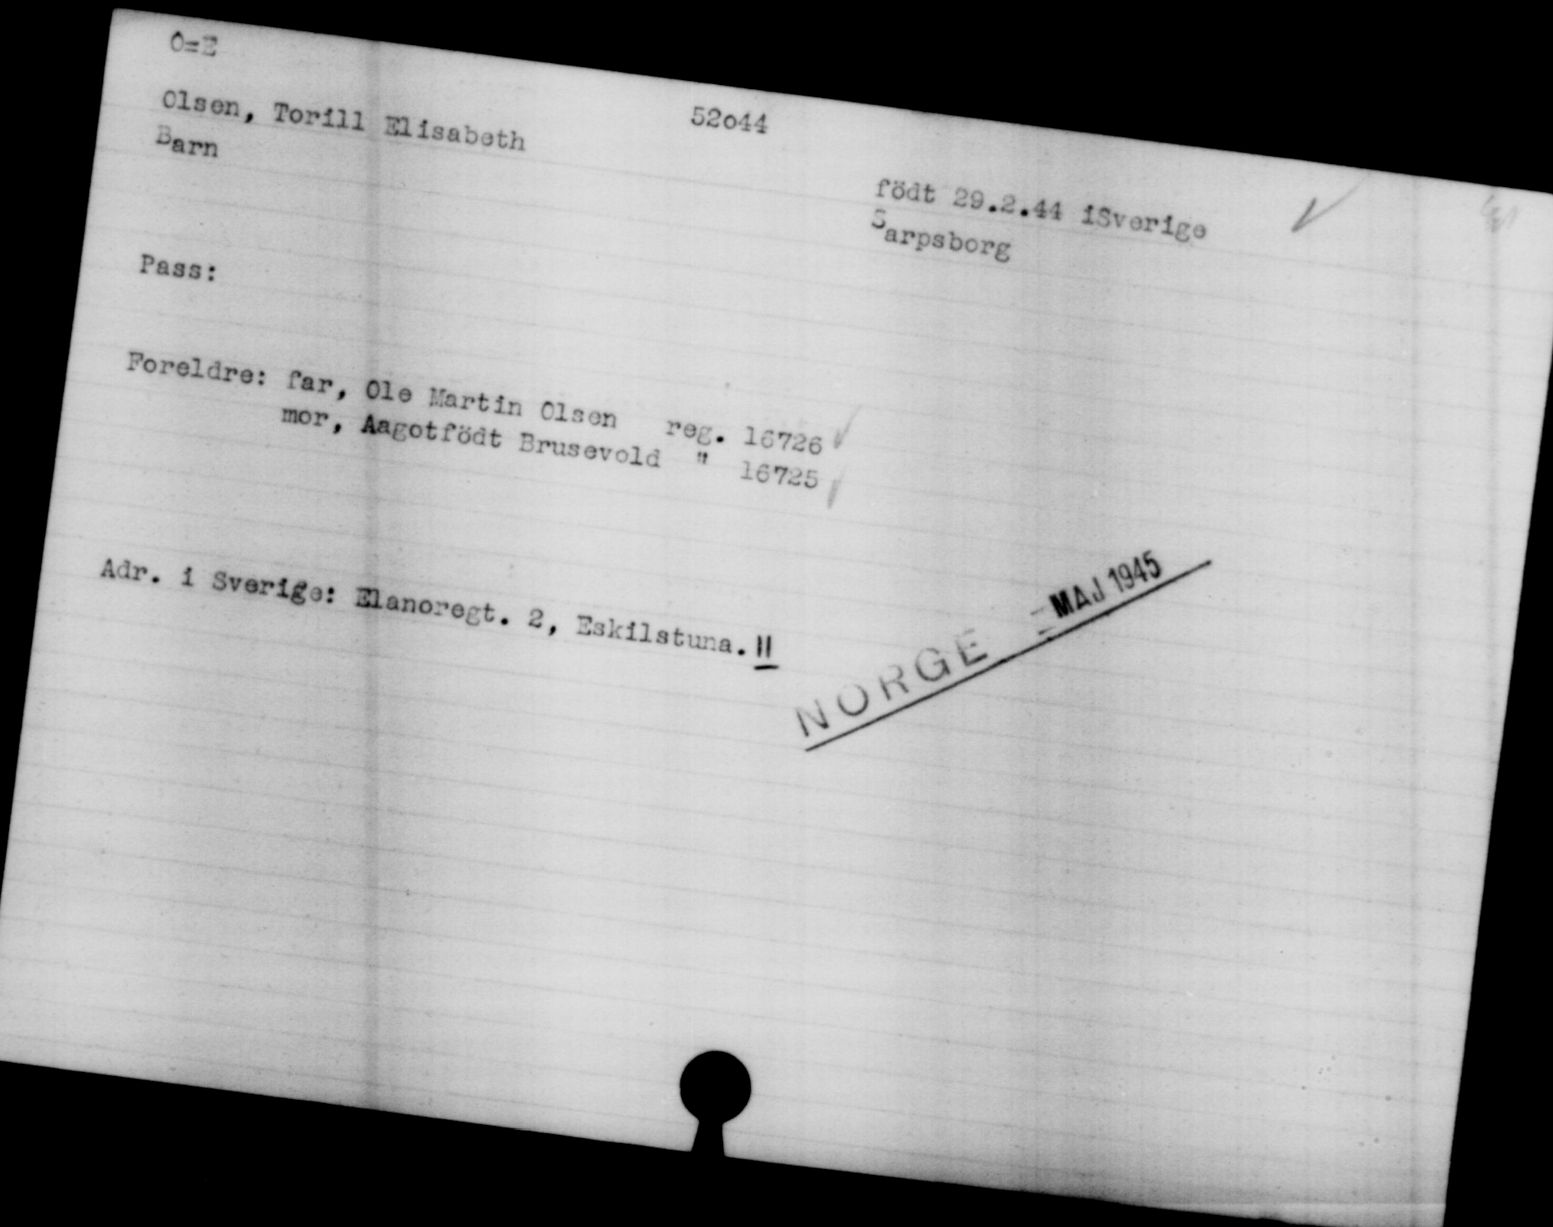 O=E
Olsen, Torill Elisabeth 52o44
Barn
födt 29.2.44 iSverige
Sarpsborg
Pass:
Foreldre: far, Ole Martin Olsen reg. 16726
mor, Aagotfödt Brusevold " 16725
Adr. i Sverige: Elanoregt. 2, Eskilstuna. II
NORGE - MAJ 1945